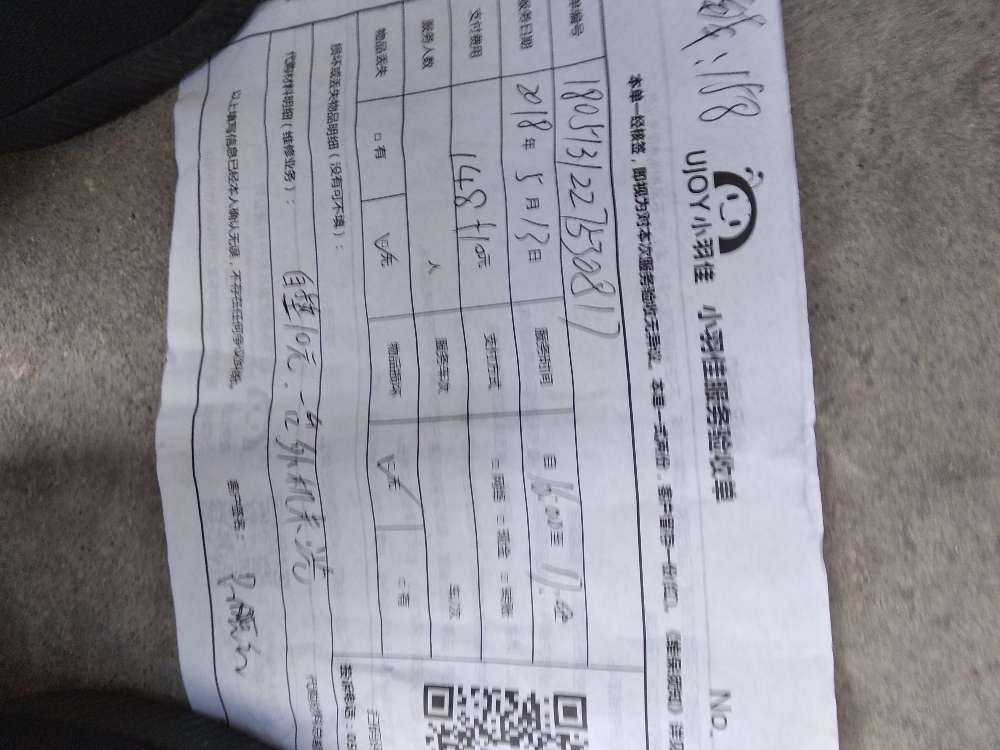 158
UJOY小羽佳 小羽佳服务验收单 No.
本单一经核签，即视为对本次服务验收无异议。本单一式两份，客户留存一份
单编号 1805131227530817
服务日期 2018年5月13日 服务时间 自16:00至17:00
支付费用 148+10元 支付方式 □网络 □现金 □转账
服务人数 人 服务车次 车次
物品丢失 □有 无 物品损坏 无 □有
损坏或丢失物品明细（没有可不填）：
代购材料明细（维修业务）：
10元.一台外机未洗
以上填写信息已经本人确认无误，不存在任何争议纠纷。 客户签名：
投诉电话：05